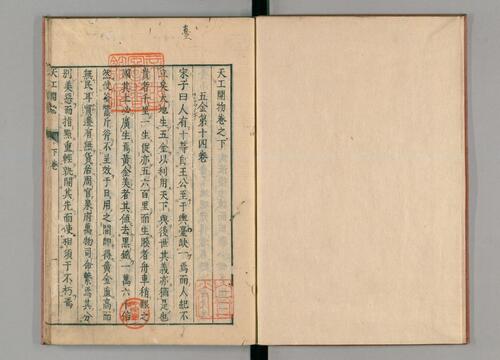 臺
天工開物卷之下
五金第十四卷
宋子曰人有十等自王公至于輿臺缺一焉而人紀不
立矣大地生五金以利用天下與後世其義亦猶是也
貴者千里一生促亦五六百里而生賤者舟車稍艱之
國其土必廣生焉黃金美者其值去黑鐵一萬六千倍
然使釜鬵斤斧不呈效于日用之間即得黃金直高而
無民耳貿遷有無貨居周官泉府萬物司命繫焉其分
別美惡而指點重輕孰開其先而使相須于不朽焉
天工開物 下卷 一